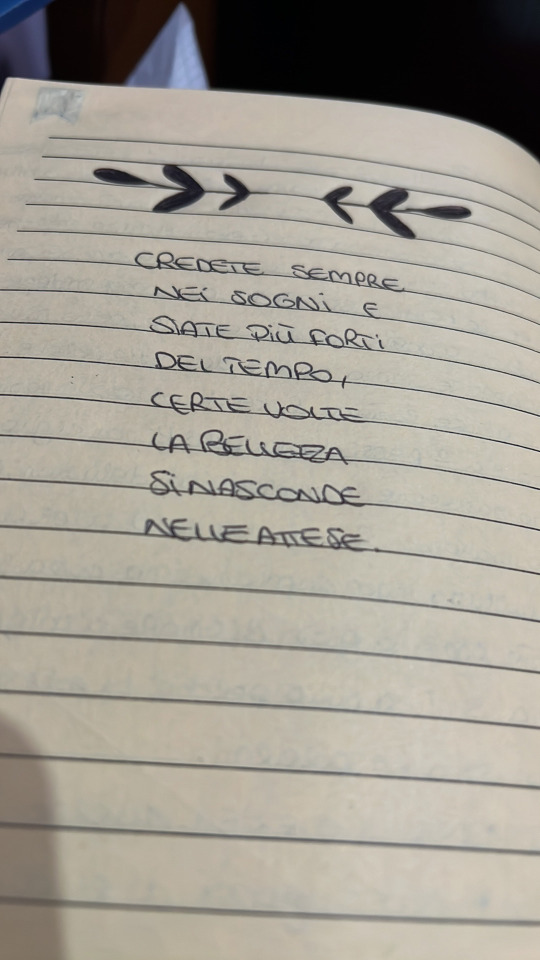 CREDETE SEMPRE
NEi SOGNi E
SIATE PiÙ FORTi
DEL TEMPO,
CERTE VOLTE
LA BELLEZZA
Si NASCONDE
NELLE ATTESE.